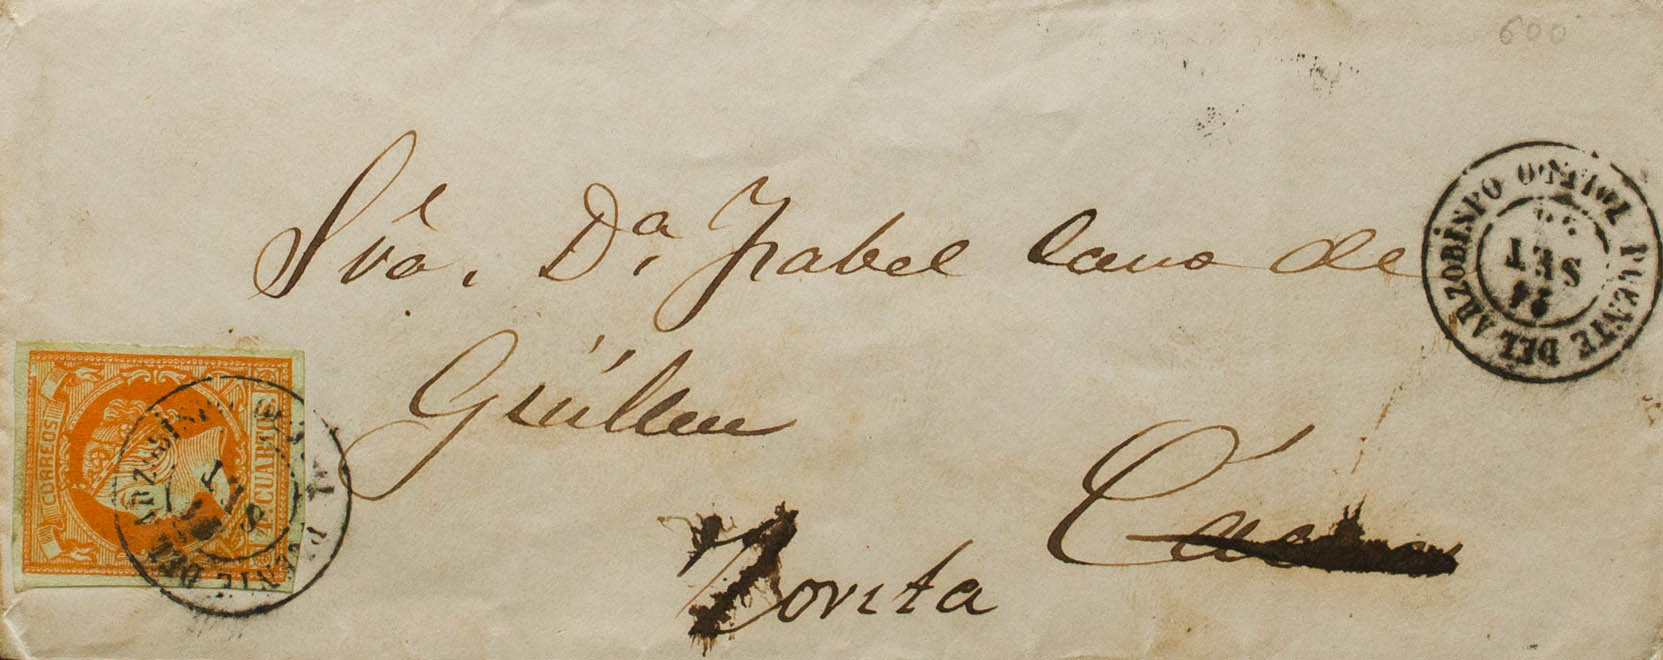 600
Sra. Dª. Isabel Cano de
Guillen
Zorita
PUENTE DEL ARZOBISPO
SET
CORREOS
4 CUARTOS
PUENTE DEL ARZOBISPO